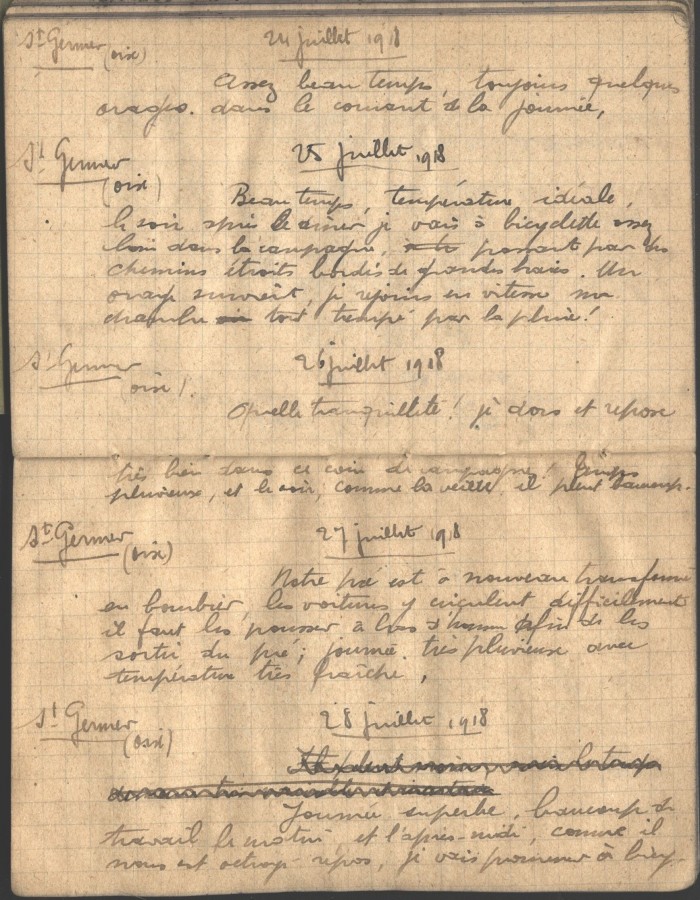 St Germer (oise) 24 juillet 1918
Assez beau temps, toujours quelques
orages. dans le courant de la journée,
St Germer (oise) 25 juillet 1918
Beau temps, température idéale,
le soir après le dîner je vais à bicyclette assez
loin dans la campagne, passant par des
chemins étroits bordés de grandes haies. Un
orage survient, je rejoins en vitesse ma
chambre tout trempé par la pluie!
St Germer (oise). 26 juillet 1918
Quelle tranquillité! je dors et repose
"très bien" dans ce coin de campagne! Temps
pluvieux, et le soir, comme la veille, il pleut beaucoup.
St Germer (oise) 27 juillet 1918
Notre pré est à nouveau transformé
en bourbier, les voitures y circulent difficilement
il faut les pousser à bras d'homme afin de les
sortir du pré; journée très pluvieuse avec
température très fraîche,
St Germer (oise) 28 juillet 1918
Journée superbe, beaucoup de
travail le matin, et l'après-midi, comme il
nous est octroyé repos, je vais promener à bicy-